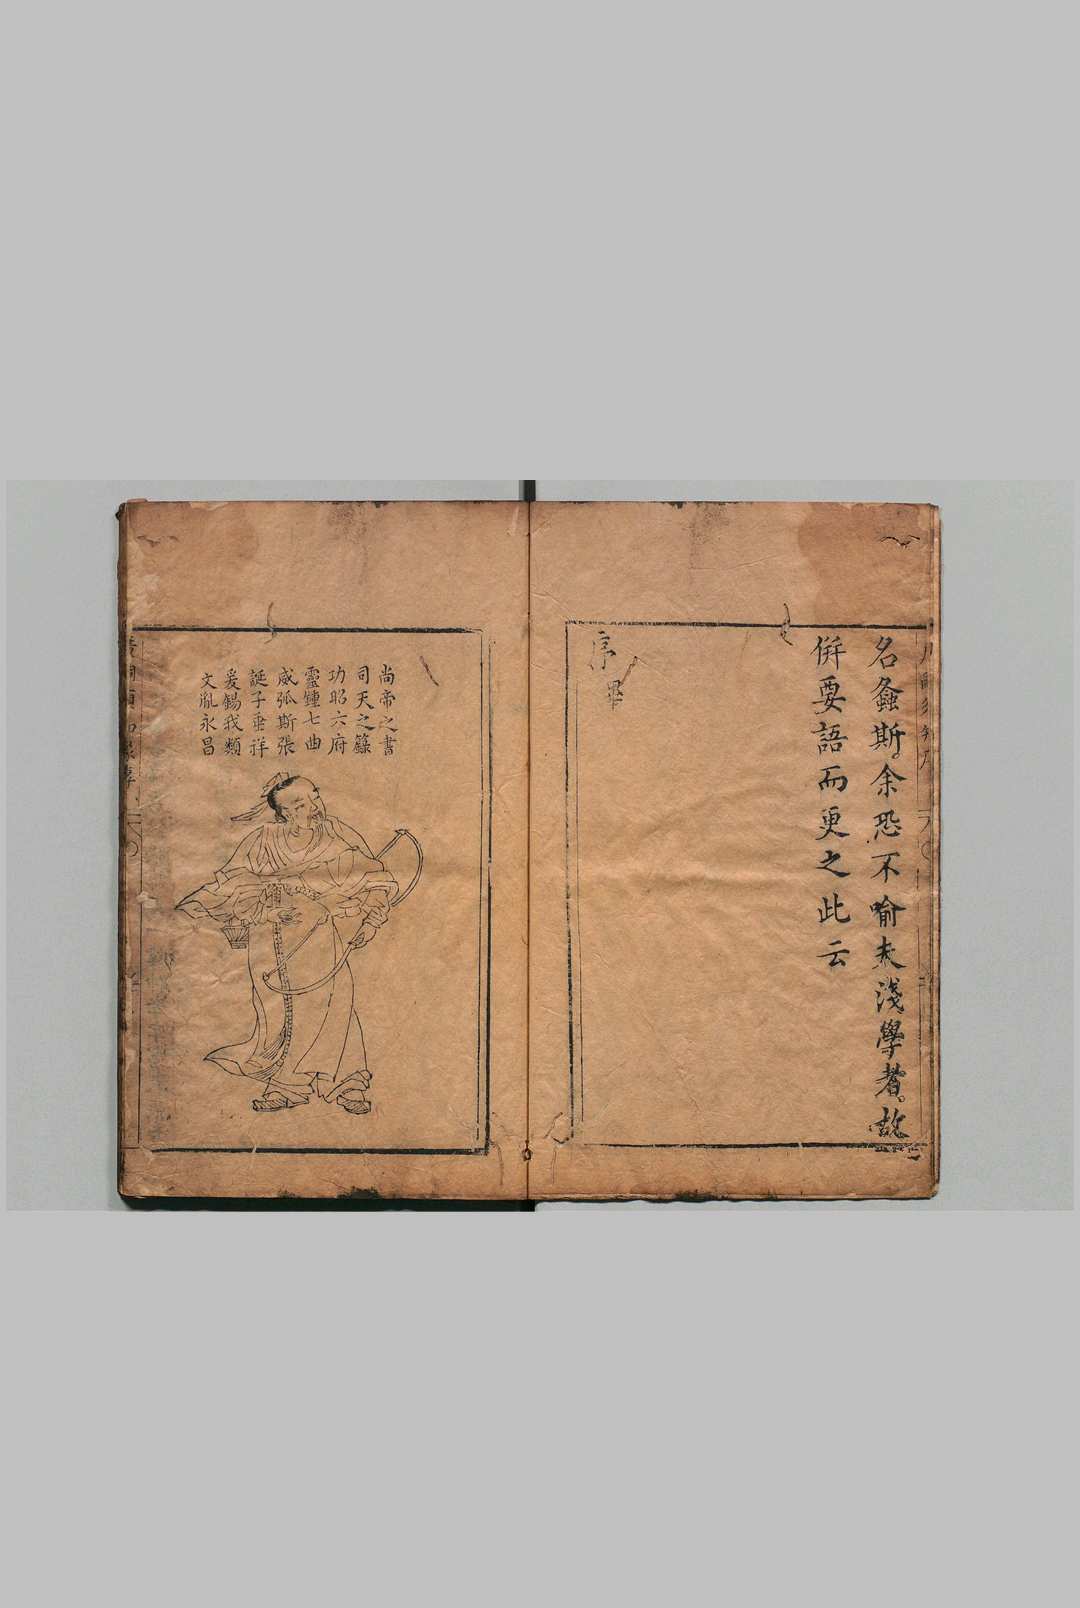 名螽斯。余恐不喻夫淺學者。故
併要語而更之此云
序畢
尚帝之書
司天之籙
功昭六府
靈鍾七曲
威弧斯張
誕子垂祥
爰錫我類
文胤永昌